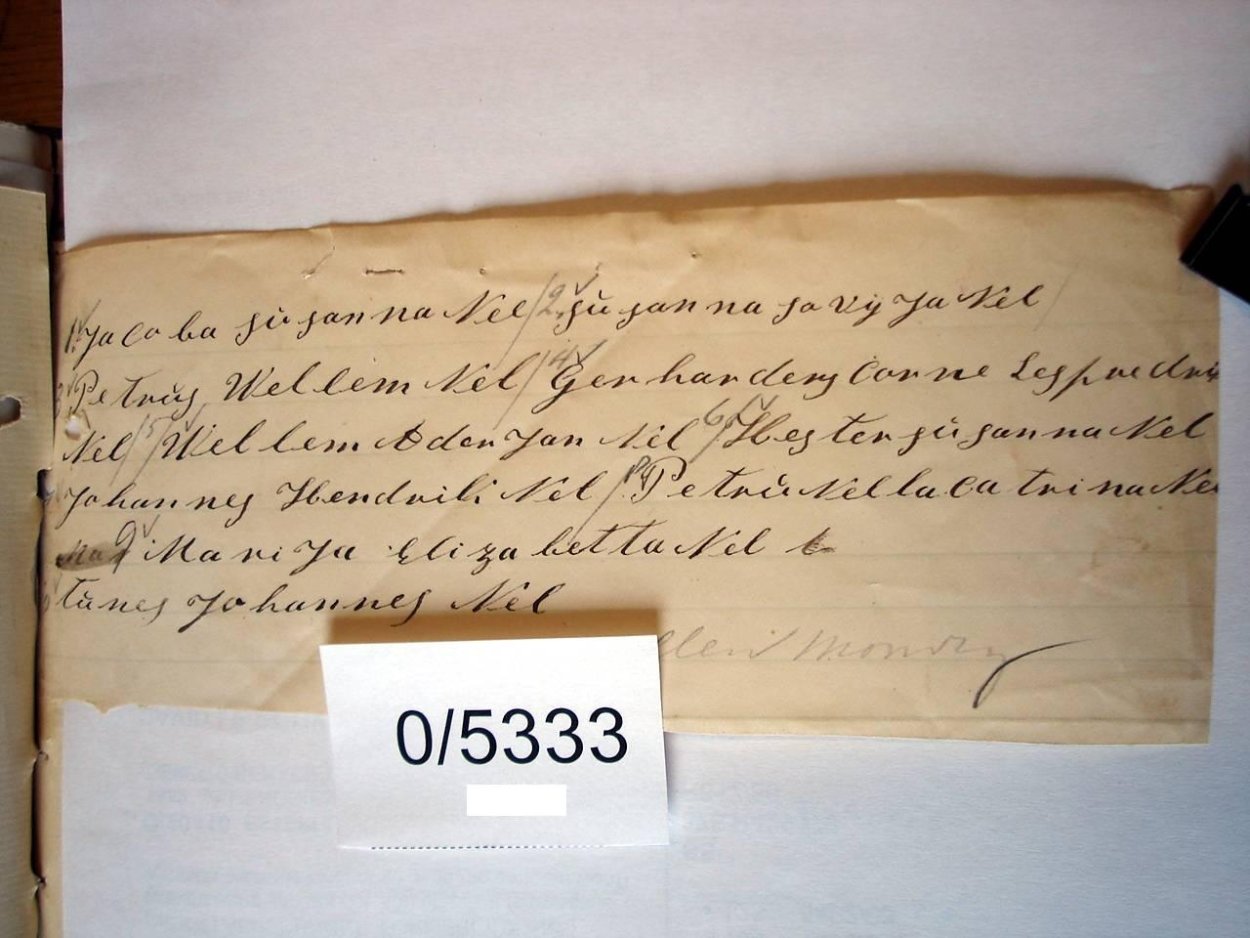 1. Jacoba susanna Nel / 2. susanna savyja Nel /
3 Petrus Wellem Nel / 4 Gerhardes Corne Les fredrik
Nel / 5 Wellem Aderjan Nel 6 / Hester susanna Nel
7 Johannes Hendrik Nel / 8 Petrunella Catrina Nel
9 Marija Elizabetta Nel
tunes Johannes Nel
0/5333